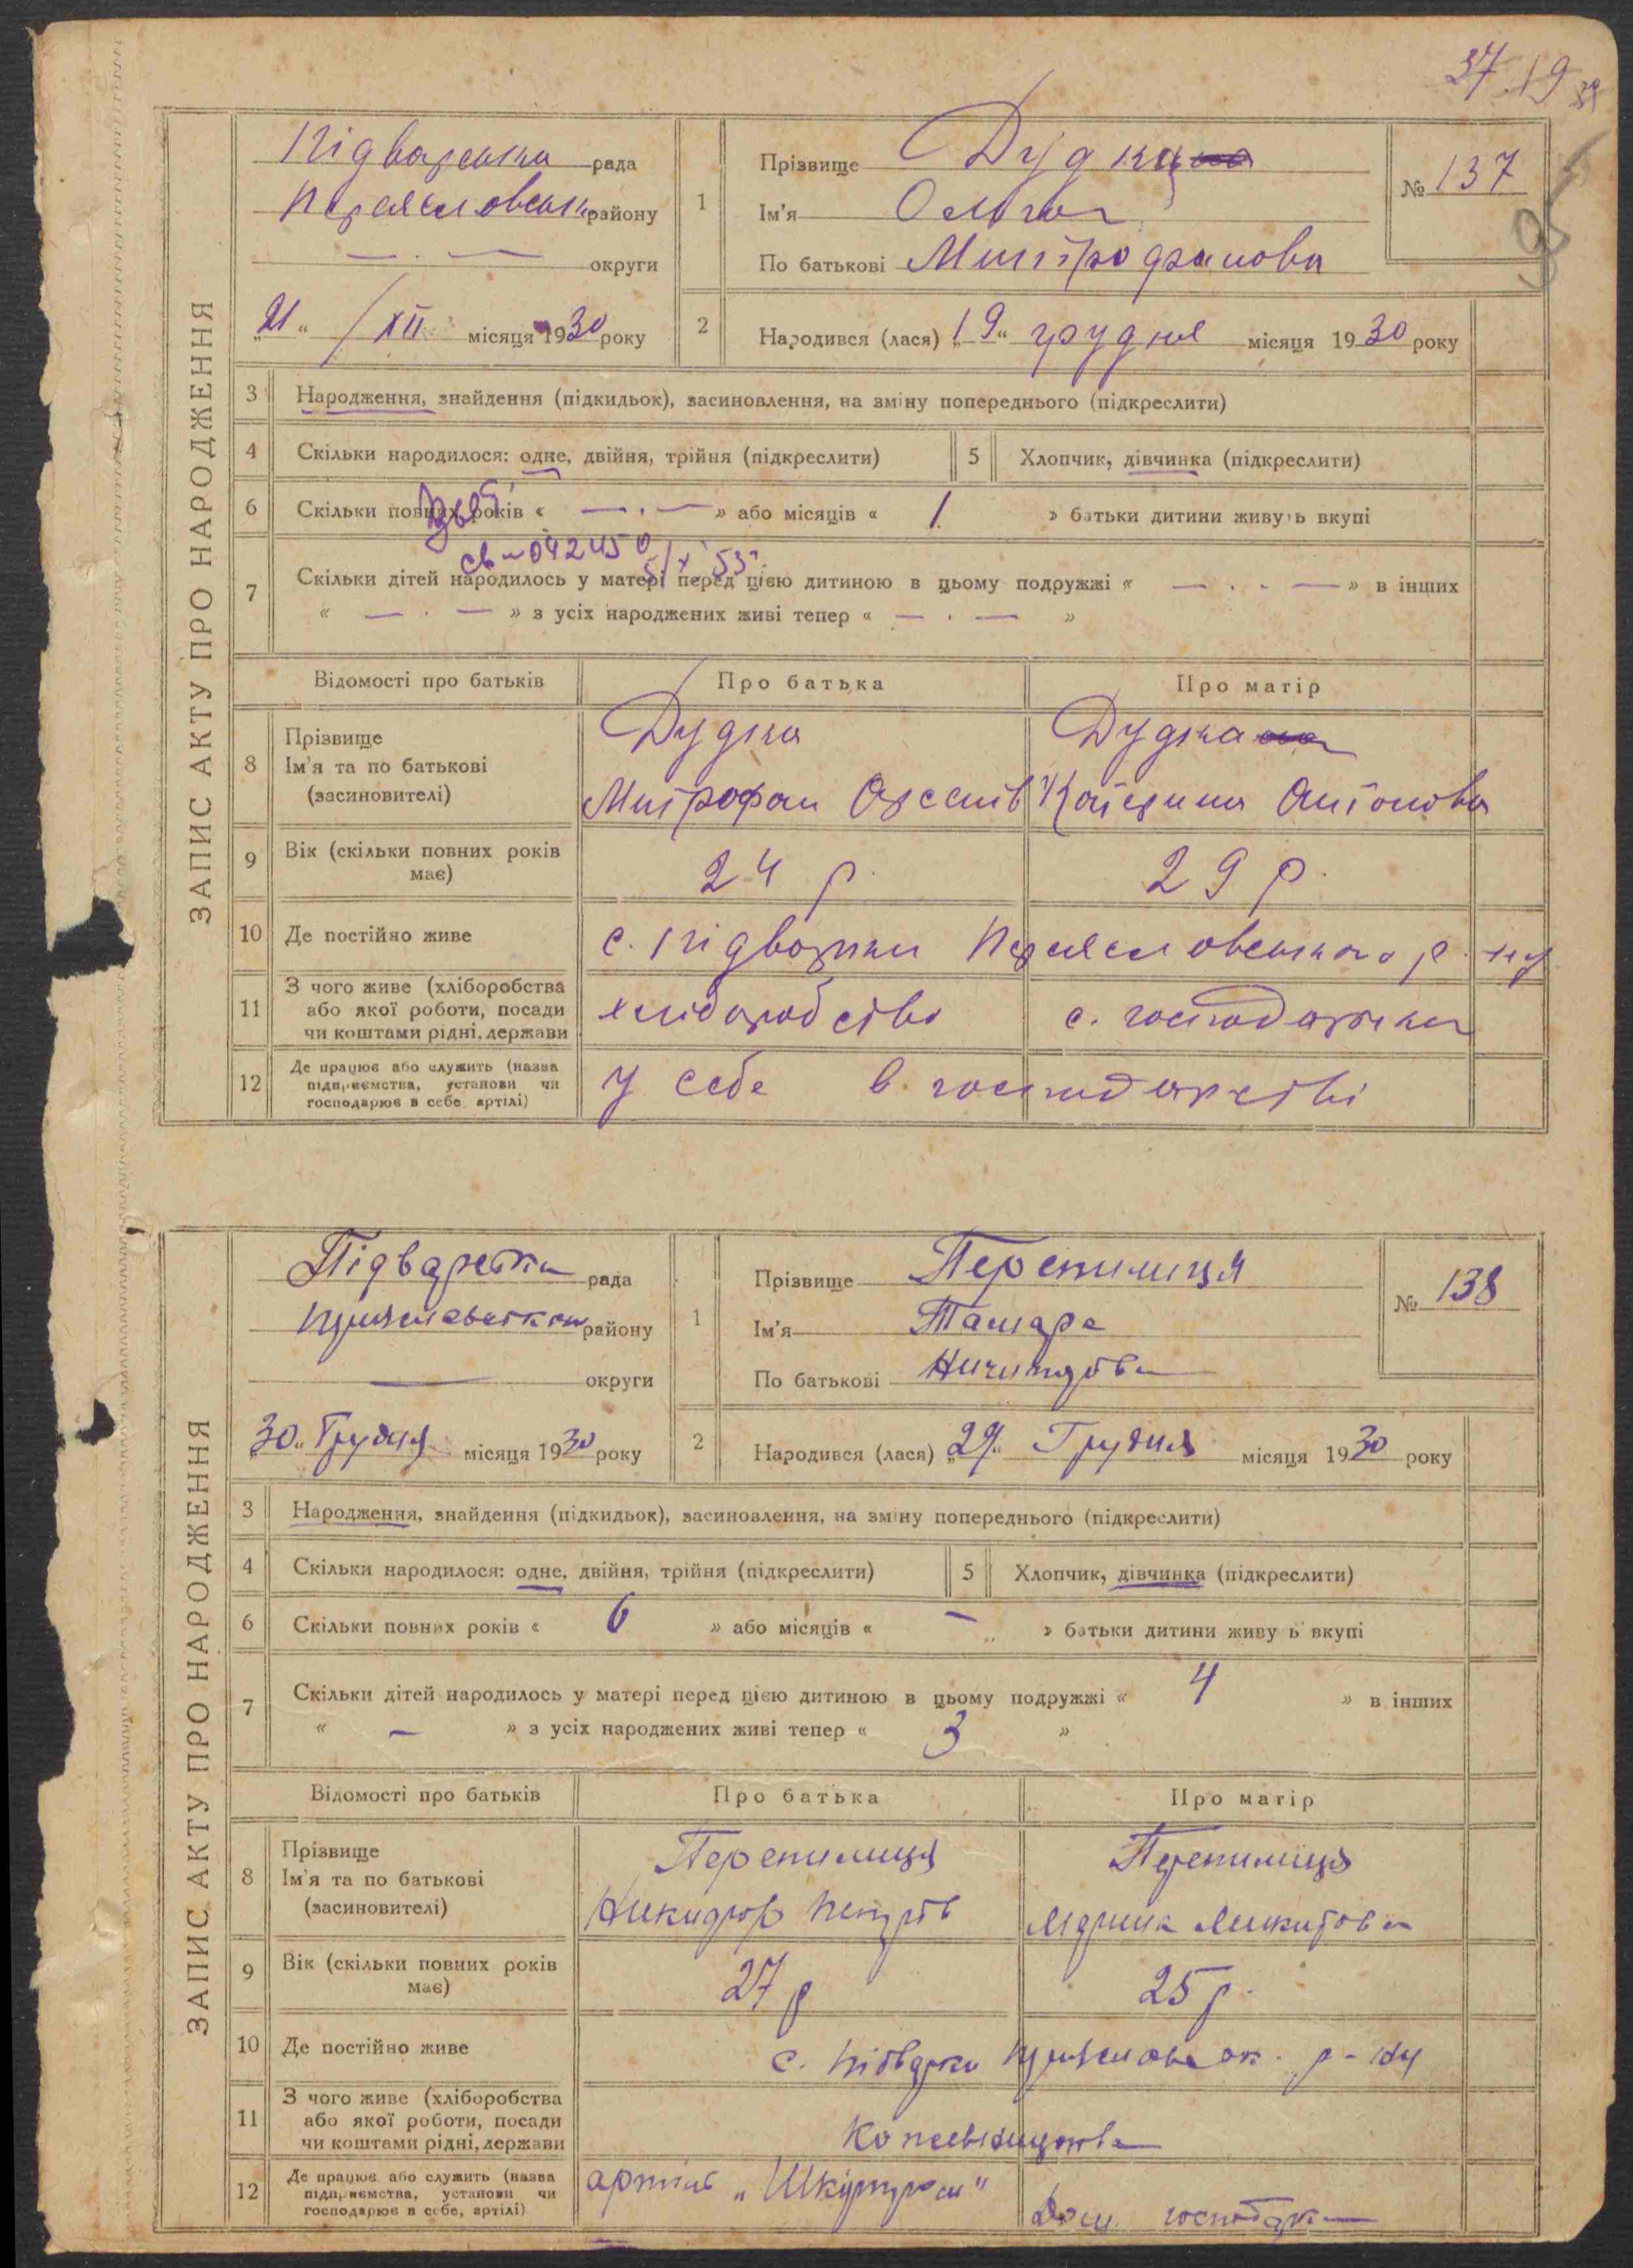 37 19
ЗАПИС АКТУ ПРО НАРОДЖЕННЯ
Підварська рада
Переяславськ району
— . — округи
„21“ / XII місяця 1930 року
1 Прізвище Дудка
Ім'я Ольга
По батькові Митрофанова
№ 137
95
2 Народився (лася) „19“ грудня місяця 1930 року
3 Народження, знайдення (підкидьок), засиновлення, на зміну попереднього (підкреслити)
4 Скільки народилося: одне, двійня, трійня (підкреслити) 5 Хлопчик, дівчинка (підкреслити)
6 Скільки повних років « — . — » або місяців « 1 » батьки дитини живуть вкупі
св-042450 5/X 53
7 Скільки дітей народилось у матері перед цією дитиною в цьому подружжі « — . - — » в інших
« — . — » з усіх народжених живі тепер « — . — »
Відомості про батьків Про батька Про матір
8 Прізвище Дудка Дудка
Ім'я та по батькові
(засиновителі) Митрофан Катерина Антонова
9 Вік (скільки повних років має) 24 р. 29 р.
10 Де постійно живе с. Підварки Переясловського р-ну
11 З чого живе (хліборобства або якої роботи, посади чи коштами рідні, держави хліборобство с. господарка
12 Де працює або служить (назва підприємства, установи чи господарює в себе, артілі) У себе в господарстві
ЗАПИС АКТУ ПРО НАРОДЖЕННЯ
Підварська рада
району
— округи
„30“ Грудня місяця 1930 року
1 Прізвище Перепилиця
Ім'я Тамара
По батькові
№ 138
2 Народився (лася) „29“ Грудня місяця 1930 року
3 Народження, знайдення (підкидьок), засиновлення, на зміну попереднього (підкреслити)
4 Скільки народилося: одне, двійня, трійня (підкреслити) 5 Хлопчик, дівчинка (підкреслити)
6 Скільки повних років « 6 » або місяців « – » батьки дитини живу ь вкупі
7 Скільки дітей народилось у матері перед цією дитиною в цьому подружжі « 4 » в інших
« – » з усіх народжених живі тепер « 3 »
Відомості про батьків Про батька Про матір
8 Прізвище Перепилиця Перепилиця
Ім'я та по батькові
(засиновителі) Никифор Петрів Микитовна
9 Вік (скільки повних років має) 27 р 25 р.
10 Де постійно живе с. Підварки р-ну
11 З чого живе (хліборобства або якої роботи, посади чи коштами рідні, держави
12 Де працює або служить (назва підприємства, установи чи господарює в себе, артілі) артіль Дом. господарка